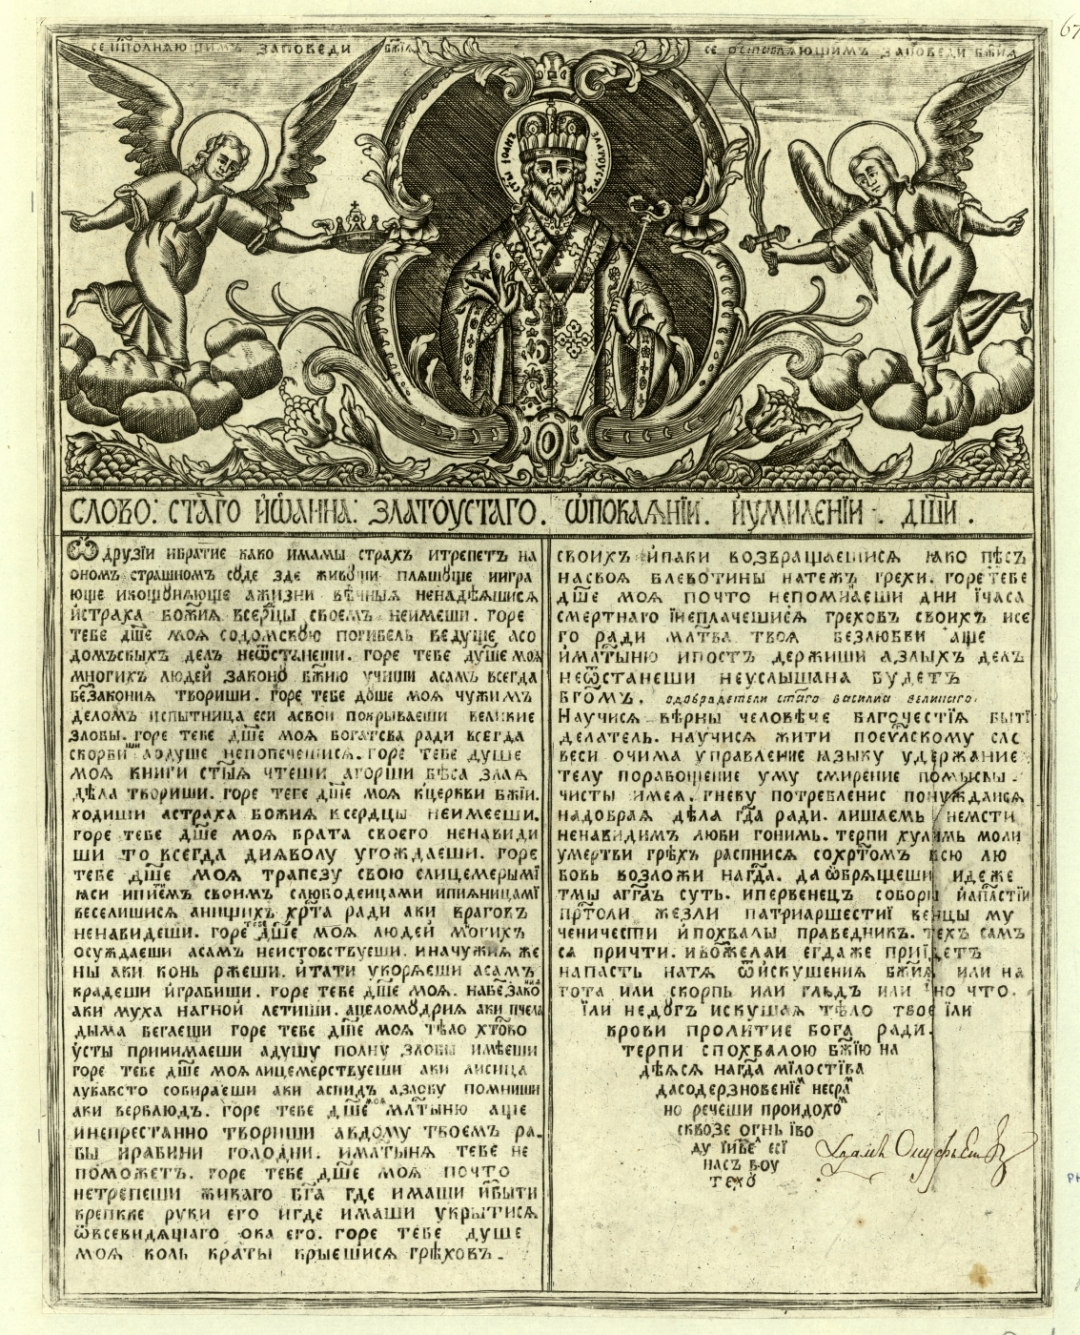 СЕ ИСПОЛНЯЮЩИМЪ ЗАПОВЕДИ БЖІЯ
СЕ ОСТАВЛЯЮЩИМЪ ЗАПОВЕДИ БЖИЯ
СТЫ ІОАНЪ ЗЛАТОУСТЪ
СЛОВО: СТАГО ИѠАННА: ЗЛАТОУСТАГО. ѠПОКАѦНІИ. ИУМИЛЕНІИ. ДШИ.
Ѡ ДРУЗІИ ИБРАТИЕ КАКО ИМАМЫ СТРАХЪ ИТРЕПЕТЪ НА
ОНОМЪ СТРАШНОМЪ СꙊДЕ ЗДЕ ЖИВꙊЩИ ПЛѦШꙊЩЕ ИИГРА
ЮЩЕ АЖИЗНИ ВѢЧНЫѦ НЕНАДѢѦШИСѦ
ИСТРАХА БОЖИѦ ВСЕРЦЫ СВОЕМЪ НЕИМЕШИ. ГОРЕ
ТЕБЕ ДШЕ МОѦ СОДОМСКꙊЮ ПОГИБЕЛЬ ВЕДУЩЕ АСО
ДОМЪСКЫХЪ ДЕЛЪ НЕѾСТАНЕШИ. ГОРЕ ТЕБЕ ДУШЕ МОѦ
МНОГИХЪ ЛЮДЕЙ ЗАКОНꙊ БЖИЮ УЧИШИ АСАМЪ ВСЕГДА
БЕЗАКОНИЯ ТВОРИШИ. ГОРЕ ТЕБЕ ДꙊШЕ МОЯ ЧУЖИМЪ
ДЕЛОМЪ ИСПЫТНИЦА ЕСИ АСВОИ ПОКРЫВАЕШИ ВЕЛИКИЕ
ЗЛОБЫ. ГОРЕ ТЕБЕ ДШЕ МОЯ БОГАТСВА РАДИ ВСЕГДА
СКОРБИШИ АОДУШЕ НЕПОПЕЧЕШИСѦ. ГОРЕ ТЕБЕ ДУШЕ
МОѦ КНИГИ СТЫѦ ЧТЕШИ АГОРШИ БѢСА ЗЛАѦ
ДѢЛА ТВОРИШИ. ГОРЕ ТЕБЕ ДШЕ МОѦ КЦЕРКВИ БЖІИ.
ХОДИШИ АСТРАХА БОЖИѦ КСЕРДЦЫ НЕИМЕЕШИ.
ГОРЕ ТЕБЕ ДШЕ МОѦ БРАТА СВОЕГО НЕНАВИДИ
ШИ ТО ВСЕГДА ДИѦВОЛУ УГОЖДАЕШИ. ГОРЕ
ТЕБЕ ДШЕ МОѦ ТРАПЕЗУ СВОЮ СЛИЦЕМЕРЫМІ
ѦСИ ИПИЕМЪ СВОИМЪ СЛЮБОДЕИЦАМИ ИПИѦНИЦАМІ
ВЕСЕЛИШИСѦ АНИЩИХЪ ХРТА РАДИ АКИ ВРАГОВЪ
НЕНАВИДЕШИ. ГОРЕ ТЕБЕ ДШЕ МОѦ ЛЮДЕЙ МОГИХЪ
ОСУЖДАЕШИ АСАМЪ НЕИСТОВСТВУЕШИ. ИНАЧУЖИѦ ЖЕ
НЫ АКИ КОНЬ РЖЕШИ. ИТАТИ УКОРѦЕШИ АСАМЪ
КРАДЕШИ ИГРАБИШИ. ГОРЕ ТЕБЕ ДШЕ МОѦ. НАБЕЗАКО
АКИ МУХА НАГНОЙ ЛЕТИШИ. АЦЕЛОМꙊДРИѦ АКИ ПЧЕЛА
ДЫМА БЕГАЕШИ ГОРЕ ТЕБЕ ДШЕ МОѦ ТѢЛО ХТОВО
УСТЫ ПРИИМАЕШИ АДУШУ ПОЛНУ ЗЛОБЫ ИМѢЕШИ
ГОРЕ ТЕБЕ ДШЕ МОѦ ЛИЦЕМЕРСТВУЕШИ АКИ ЛИСИЦА
ЛУКАВСТО СОБИРАЕШИ АКИ АСПИДЪ АЗЛОБУ ПОМНИШИ
АКИ ВЕРБЛЮДЪ. ГОРЕ ТЕБЕ ДШЕ МОѦ МЛТЫНЮ АЩЕ
ИНЕПРЕСТАННО ТВОРИШИ АВДОМУ ТВОЕМЪ РА.
БЫ ИРАБИНИ ГОЛОДНИ. ИМЛТЫНѦ ТЕБЕ НЕ
ПОМОЖЕТЪ. ГОРЕ ТЕБЕ ДШЕ МОѦ ПОЧТО
НЕТРЕПЕШИ ЖИВАГО БГА ГДЕ ИМАШИ ИЗБЫТИ
КРЕПКИЕ РУКИ ЕГО ИГДЕ ИМАШИ УКРЫТИСѦ
ѾВСЕВИДѦЩІАГО ОКА ЕГО. ГОРЕ ТЕБЕ ДУШЕ
МОѦ КОЛЬ КРАТЫ КРЫЕШИСѦ ГРѢХОВЪ.
СВОИХЪ ИПАКИ ВОЗВРАЩАЕШИСѦ ѦКО ПѢСЪ
НАСВОѦ БЛЕВОТИНЫ НАТЕЖЪ ГРЕХИ. ГОРЕ ТЕБЕ
ДШЕ МОѦ ПОЧТО НЕПОМНАЕШИ ДНИ ІЧАСА
СМЕРТНАГО ІНЕПЛАЧЕШИСѦ ГРЕХОВЪ СВОИХЪ ИСЕ
ГО РАДИ МЛТВА ТВОЯ БЕЗЛЮБВИ АЩЕ
ИМЛТЫНЮ ИПОСТЪ ДЕРЖИШИ АЗЛЫХЪ ДЕЛЪ
НЕѾСТАНЕШИ НЕУСЛЫШАНА БУДЕТЪ
БГОМЪ. ОДОБРАДЕТЕЛИ СТАГО ВАСИЛИЯ ВЕЛИКАГО.
НАУЧИСѦ ВѢРНЫ ЧЕЛОВѢЧЕ БЛГОЧЕСТІѦ БЫТІ
ДЕЛАТЕЛЬ. НАУЧИСѦ ЖИТИ ПОЕУЛСКОМУ СЛО
ВЕСИ ОЧИМА УПРАВЛЕНИЕ ѦЗЫКУ УДЕРЖАНИЕ
ТЕЛУ ПОРАБОЩЕНИЕ УМУ СМИРЕНИЕ ПОМЫСЛЫ
ЧИСТЫ ИМЕѦ. ГНЕВУ ПОТРЕБЛЕНИЕ ПОНУЖДАИСѦ
НАДОБРАѦ ДѢЛА ГДА РАДИ. ЛИШАЕМЪ НЕМСТИ
НЕНАВИДИМЪ ЛЮБИ ГОНИМЪ. ТЕРПИ ХУЛИМЪ МОЛИ
УМЕРТВИ ГРѢХЪ РАСПНИСѦ СОХРТОМЪ ВСЮ ЛЮ
БОВЬ ВОЗЛОЖИ НАГДА. ДАѠБРѦЩЕШИ ИДЕЖЕ
ТМЫ АГГЛЪ СУТЬ. ИПЕРВЕНЕЦЪ СОБОРИ ИАПЛСТІИ
ПРТОЛИ ЖЕЗЛИ ПАТРИАРШЕСТИІ ВЕНЦЫ МУ
ЧЕНИЧЕСТИ ИПОХВАЛЫ ПРАВЕДНИКЪ. ТЕХЪ САМЪ
СѦ ПРИЧТИ. ИВОЖЕЛАИ ЕГДАЖЕ ПРИІДЕТЪ
НАПАСТЬ НАТѦ ѾИСКУШЕНИѦ БЖИѦ ИЛИ НА
ГОТА ИЛИ СКОРПЬ ИЛИ ГЛАДЪ ИЛИ ИНО ЧТО.
ІЛИ НЕДꙊГЪ ИСКУШАѦ ТѢЛО ТВОЕ ІЛИ
КРОВИ ПРОЛИТИЕ БОГА РАДИ.
ТЕРПИ СПОХВАЛОЮ БЖІЮ НА
ДѢѦСѦ НАГДА МІЛОСТІВА
ДАСОДЕРЗНОВЕНІЕМ НЕСРАМ
НО РЕЧЕШИ ПРОИДОХОМ
СКВОЗЕ ОГНЬ ІВО
ДУ ІИЗВЕ ЕСІ
НАСЪ ВОУ
ТЕХꙊ